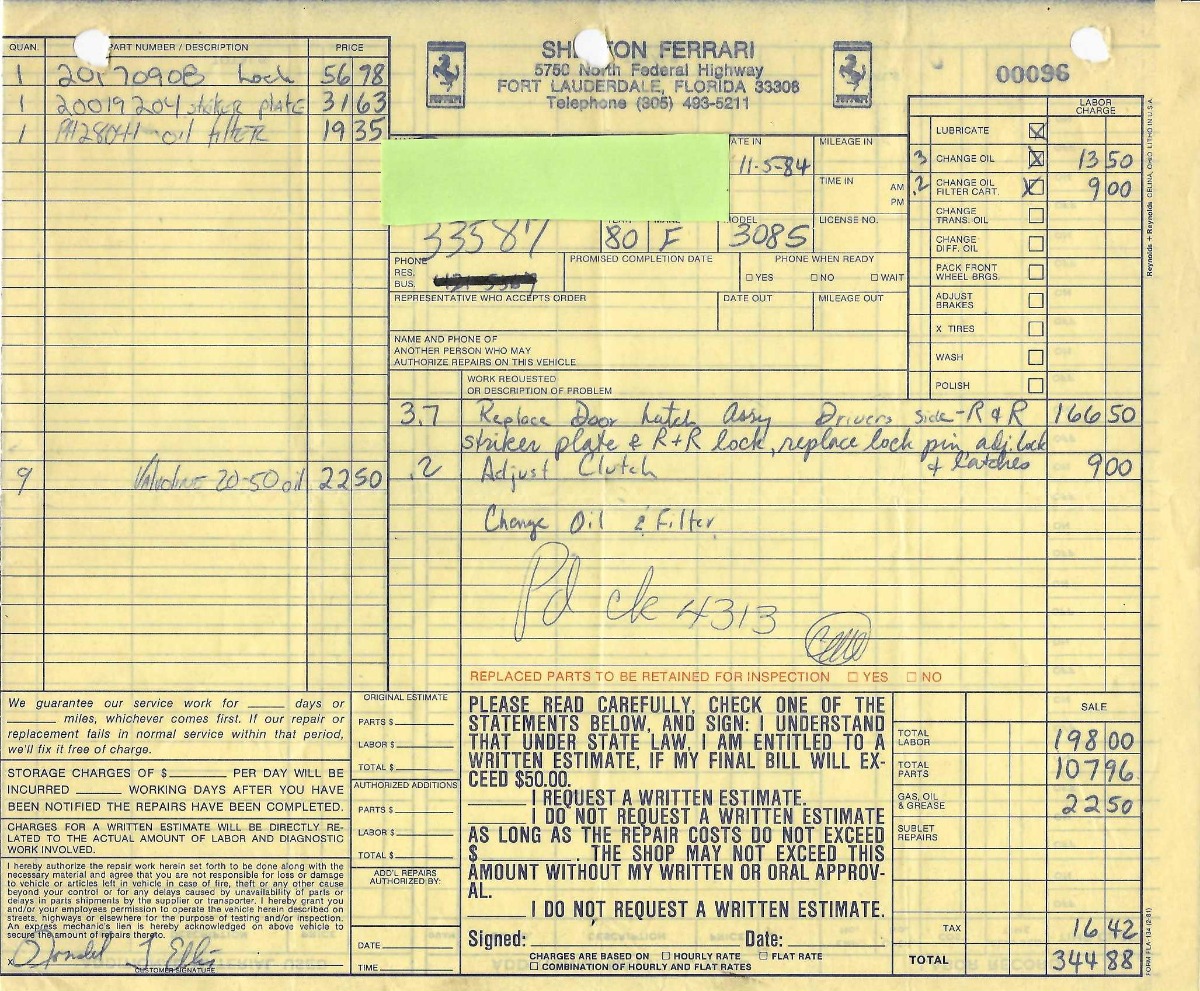 QUAN. PART NUMBER / DESCRIPTION PRICE
1 20170908 Lock 56 98
1 20019204 striker plate 31 63
1 PH2804-1 oil filter 19 35
9 Valvoline 20-50 oil 22 50
FERRARI
5750 North Federal Highway
FORT LAUDERDALE, FLORIDA 33308
Telephone (305) 493-5211
00096
DATE IN 11-5-84
MILEAGE IN
TIME IN AM PM
33587
80 F 308S
MODEL
LICENSE NO.
PHONE
RES.
BUS.
PROMISED COMPLETION DATE
PHONE WHEN READY
☐ YES ☐ NO ☐ WAIT
REPRESENTATIVE WHO ACCEPTS ORDER
DATE OUT MILEAGE OUT
NAME AND PHONE OF
ANOTHER PERSON WHO MAY
AUTHORIZE REPAIRS ON THIS VEHICLE
LABOR CHARGE
LUBRICATE ☒
.3 CHANGE OIL ☒ 13 50
.2 CHANGE OIL FILTER CART. ☒ 9 00
CHANGE TRANS. OIL ☐
CHANGE DIFF. OIL ☐
PACK FRONT WHEEL BRGS. ☐
ADJUST BRAKES ☐
X TIRES ☐
WASH ☐
POLISH ☐
WORK REQUESTED
OR DESCRIPTION OF PROBLEM
3.7 Replace Door Latch Assy Drivers side - R & R 166 50
striker plate & R+R lock, replace lock pin, adj. lock
& latches
.2 Adjust Clutch 9 00
Change Oil & Filter
Pd ck 4313
REPLACED PARTS TO BE RETAINED FOR INSPECTION ☐ YES ☐ NO
We guarantee our service work for ____ days or
____ miles, whichever comes first. If our repair or
replacement fails in normal service within that period,
we'll fix it free of charge.
STORAGE CHARGES OF $____ PER DAY WILL BE
INCURRED ____ WORKING DAYS AFTER YOU HAVE
BEEN NOTIFIED THE REPAIRS HAVE BEEN COMPLETED.
CHARGES FOR A WRITTEN ESTIMATE WILL BE DIRECTLY RE-
LATED TO THE ACTUAL AMOUNT OF LABOR AND DIAGNOSTIC
WORK INVOLVED.
I hereby authorize the repair work herein set forth to be done along with the
necessary material and agree that you are not responsible for loss or damage
to vehicle or articles left in vehicle in case of fire, theft or any other cause
beyond your control or for any delays caused by unavailability of parts or
delays in parts shipments by the supplier or transporter. I hereby grant you
and/or your employees permission to operate the vehicle herein described on
streets, highways or elsewhere for the purpose of testing and/or inspection.
An express mechanic's lien is hereby acknowledged on above vehicle to
secure the amount of repairs thereto.
X
CUSTOMER SIGNATURE
ORIGINAL ESTIMATE
PARTS $
LABOR $
TOTAL $
AUTHORIZED ADDITIONS
PARTS $
LABOR $
TOTAL $
ADD'L REPAIRS
AUTHORIZED BY:
DATE
TIME
PLEASE READ CAREFULLY, CHECK ONE OF THE
STATEMENTS BELOW, AND SIGN: I UNDERSTAND
THAT UNDER STATE LAW, I AM ENTITLED TO A
WRITTEN ESTIMATE, IF MY FINAL BILL WILL EX-
CEED $50.00.
____ I REQUEST A WRITTEN ESTIMATE.
____ I DO NOT REQUEST A WRITTEN ESTIMATE
AS LONG AS THE REPAIR COSTS DO NOT EXCEED
$____. THE SHOP MAY NOT EXCEED THIS
AMOUNT WITHOUT MY WRITTEN OR ORAL APPROV-
AL.
____ I DO NOT REQUEST A WRITTEN ESTIMATE.
Signed: ____ Date: ____
CHARGES ARE BASED ON ☐ HOURLY RATE ☐ FLAT RATE
☐ COMBINATION OF HOURLY AND FLAT RATES
SALE
TOTAL LABOR 198 00
TOTAL PARTS 107 96
GAS, OIL & GREASE 22 50
SUBLET REPAIRS
TAX 16 42
TOTAL 344 88
Reynolds + Reynolds CELINA, OHIO LITHO IN U.S.A.